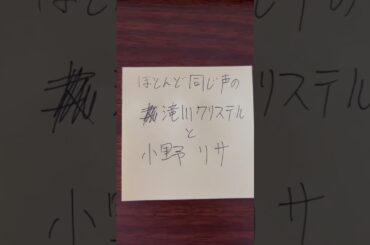 ほとんど同じ声の
滝川クリステル
と
小野 リサ